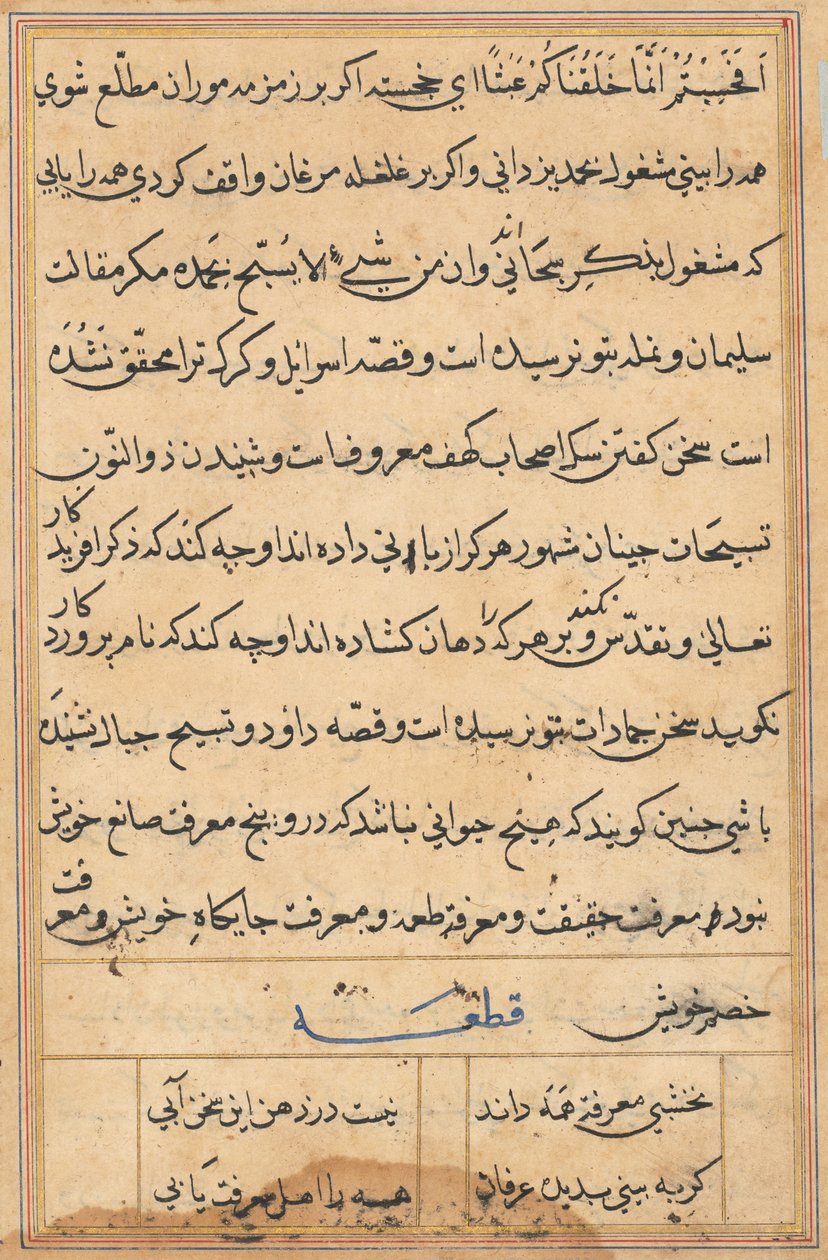 اَفَحَسِبْتُمْ اَنَّمَا خَلَقْنَاكُمْ عَبَثًا اي خجسته اكر بر زمزمه موران مطلّع شوي
همه را بيني مشغول بحمد يزداني و اكر بر غلغله مرغان واقف كردي همه را يابي
كه مشغول بذكرِ سبحَاني اند وان من شيءٍ الا يسبّح بحمده مكر مقالت
سليمان و نمله بتو نرسيده است و قصّه اسرائيل و كرك ترا محقّق نَشُدَه
است سخن كفتن سك اصحاب كهف معروف است و شنيدن ذوالنّون
تسبيحَات جينان مشهور هر كرا زباني داده اند او چه كند كه ذكر افريدكار
تعالىٰ و تقدّس نكند و بر هر كه را دهان كشاده اند او چه كند كه نام پروردكار
نكويد سخن جمادات بتو نرسيده است و قصّه داؤد و تسبيح جبال نشنيده
باشي چنين كويند كه هيچ حيواني نباشد كه درو پنج معرفت صانع خويش
نبود معرفت حقيقت و معرفة طعمه و معرفت جايكاهِ خويش و معرفت
خصم خويش قطعه
نخشبي معرفة همَه داند نيست در ذهن اين سخن آبي
كر به بيني بديده عرفان همه را اهل معرفت يَابي